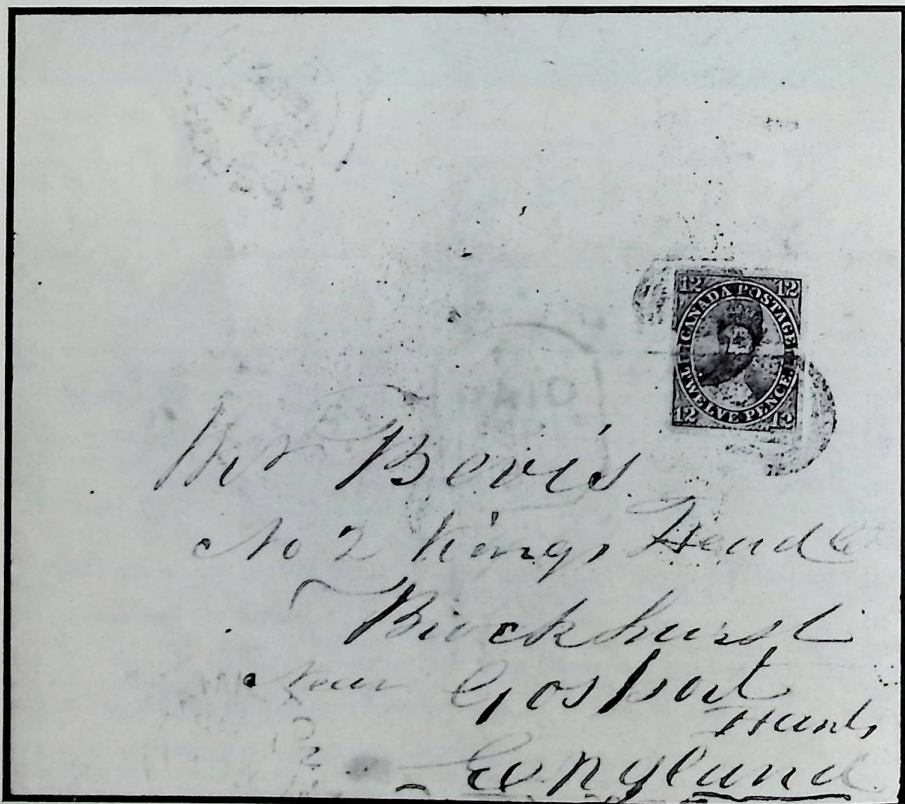 12 12
CANADA POSTAGE
TWELVE PENCE
12 12
Mr Bevis
No 2 Kings Head
Brockhurst
Near Gosport
Hants
England